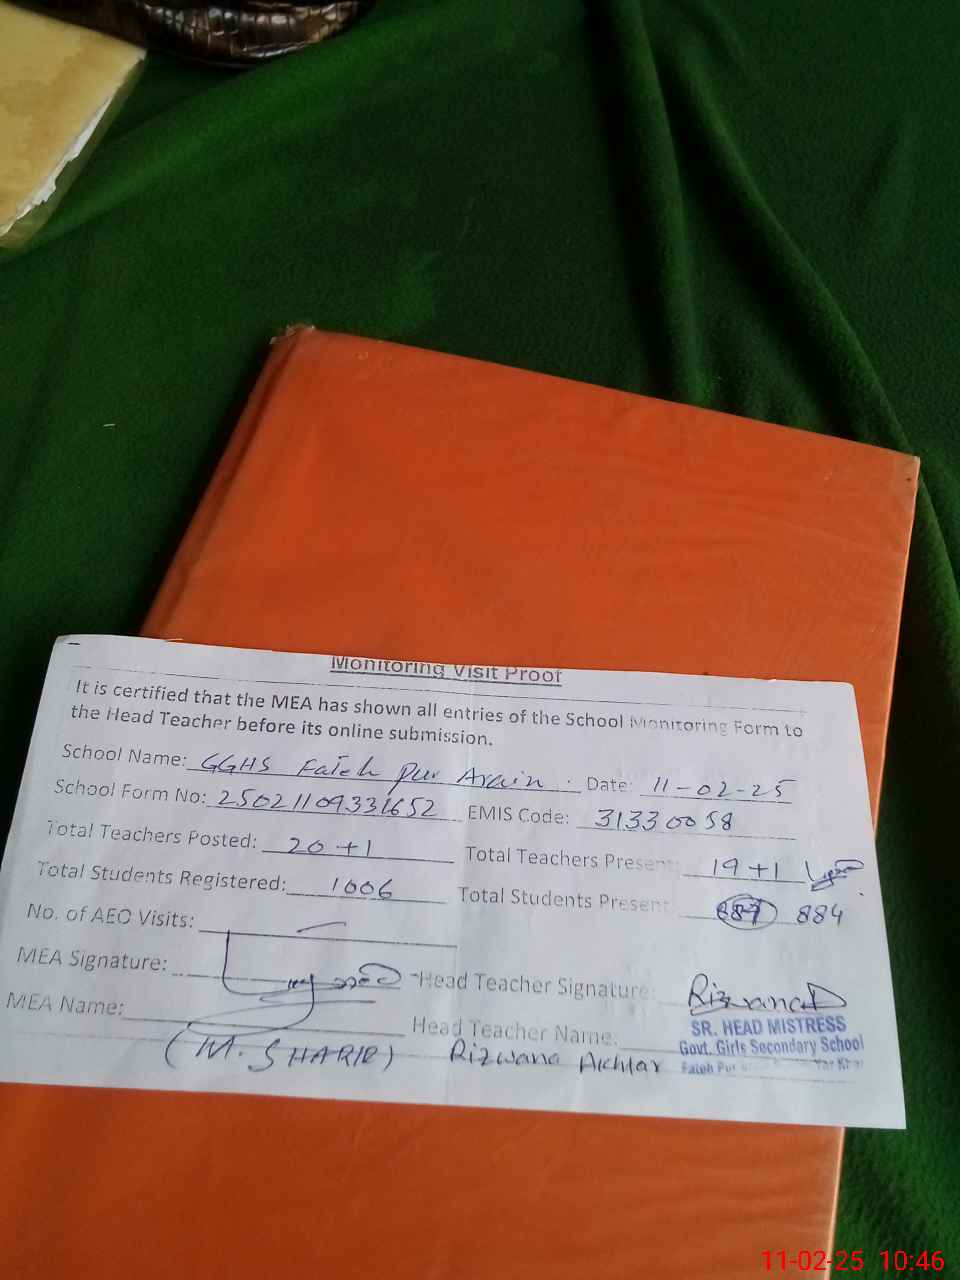 Monitoring Visit Proof
It is certified that the MEA has shown all entries of the School Monitoring Form to
the Head Teacher before its online submission.
School Name: GGHS Fateh Pur Arain Date: 11-02-25
School Form No: 25021109331652 EMIS Code: 31330058
Total Teachers Posted: 20+1 Total Teachers Present: 19+1
Total Students Registered: 1006 Total Students Present: 884
No. of AEO Visits: —
MEA Signature: Head Teacher Signature: Rizwana
MEA Name: Head Teacher Name:
(M. SHARIF) Rizwana Akhtar
SR. HEAD MISTRESS
Govt. Girls Secondary School
Fateh Pur
11-02-25 10:46